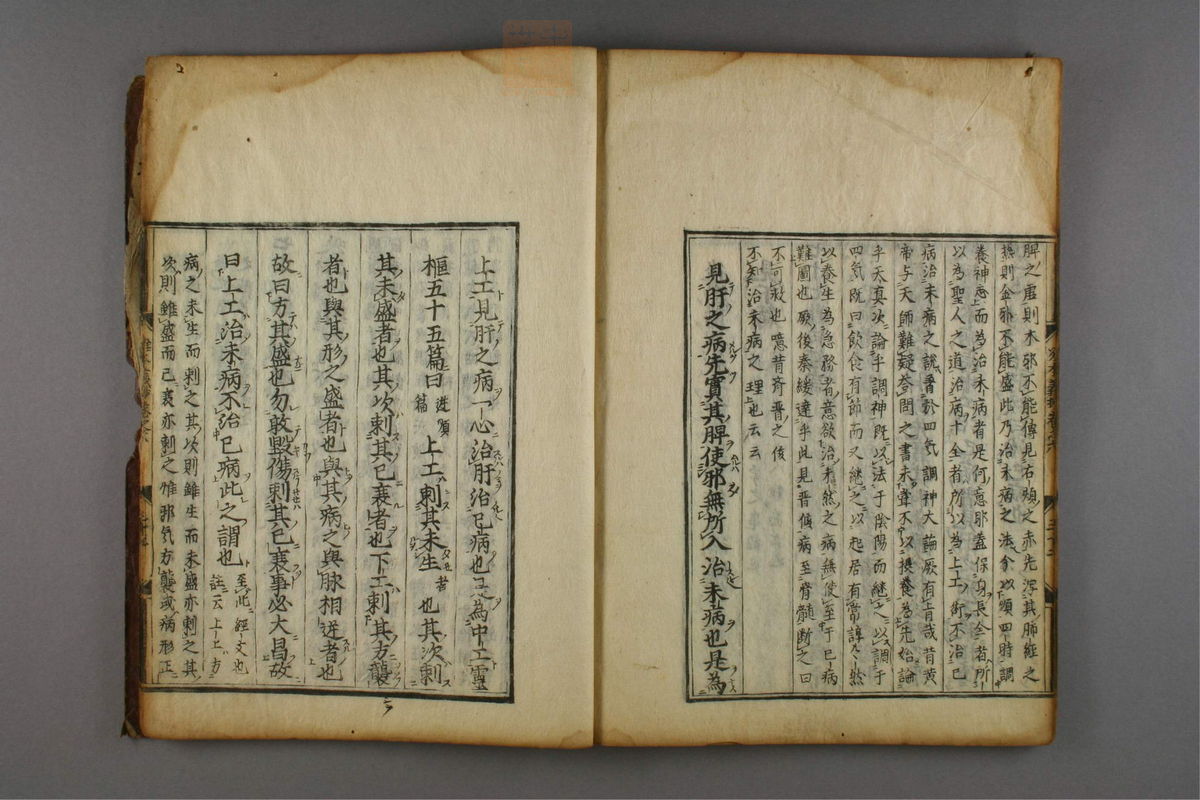 脾之虚則木邪不能傳見右頬之赤先瀉其肺經之
熱則金邪不能盛此乃治未病之法今以順四時調
養神志而為治未病者是何意耶蓋保身長全者所
以為聖人之道治病十全者所以為上工術不治已
病治未病之説著於四気調神大論厥有旨哉昔黄
帝与天師難疑荅問之書未曽不以摂養為先始論
乎天真次論乎調神既以法于陰陽而継之以調于
四気既曰飲食有節而又継之以起居有常諄々然
以養生為急務者意欲治未然之病無使至于已病
難圖也厥後秦緩達乎此見晋侯病至膏髄断之曰
不可救也噫昔斉晋之侯
不知治未病之理也云云
見肝之病先實其脾使邪無所入治未病也是為
上工見肝之病一心治肝治已病也是為中工靈
樞五十五篇曰逆順篇上工刺其未生者也其次刺
其未盛者也其次刺其已衰者也下工刺其方襲
者也與其形之盛者也與其病之與脉相逆者也
故曰方其盛也勿敢毀傷刺其已衰事必大昌故
曰上工治未病不治已病此之謂也至此經文也註云上工方
病之未生而刺之其次則雖生而未盛亦刺之其
次則雖盛而已衰亦刺之惟邪気方襲或病形正